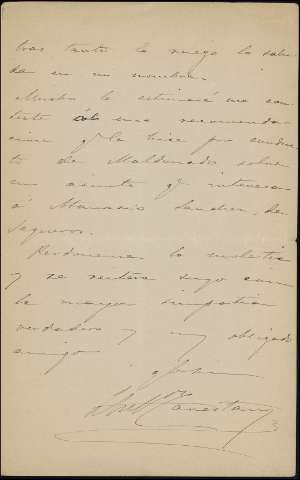 tras tanto le ruego lo salu-
de en mi nombre.
Mucho le estimaré me con-
teste á una recomenda-
cion q. le hice por conduc-
to de Maldonado sobre
un asunto q. interesa
á Mariano Sanchez, de
Segueros.
Perdoneme la molestia
y se reitera suyo con
la mayor simpatia
verdadero y muy obligado
amigo